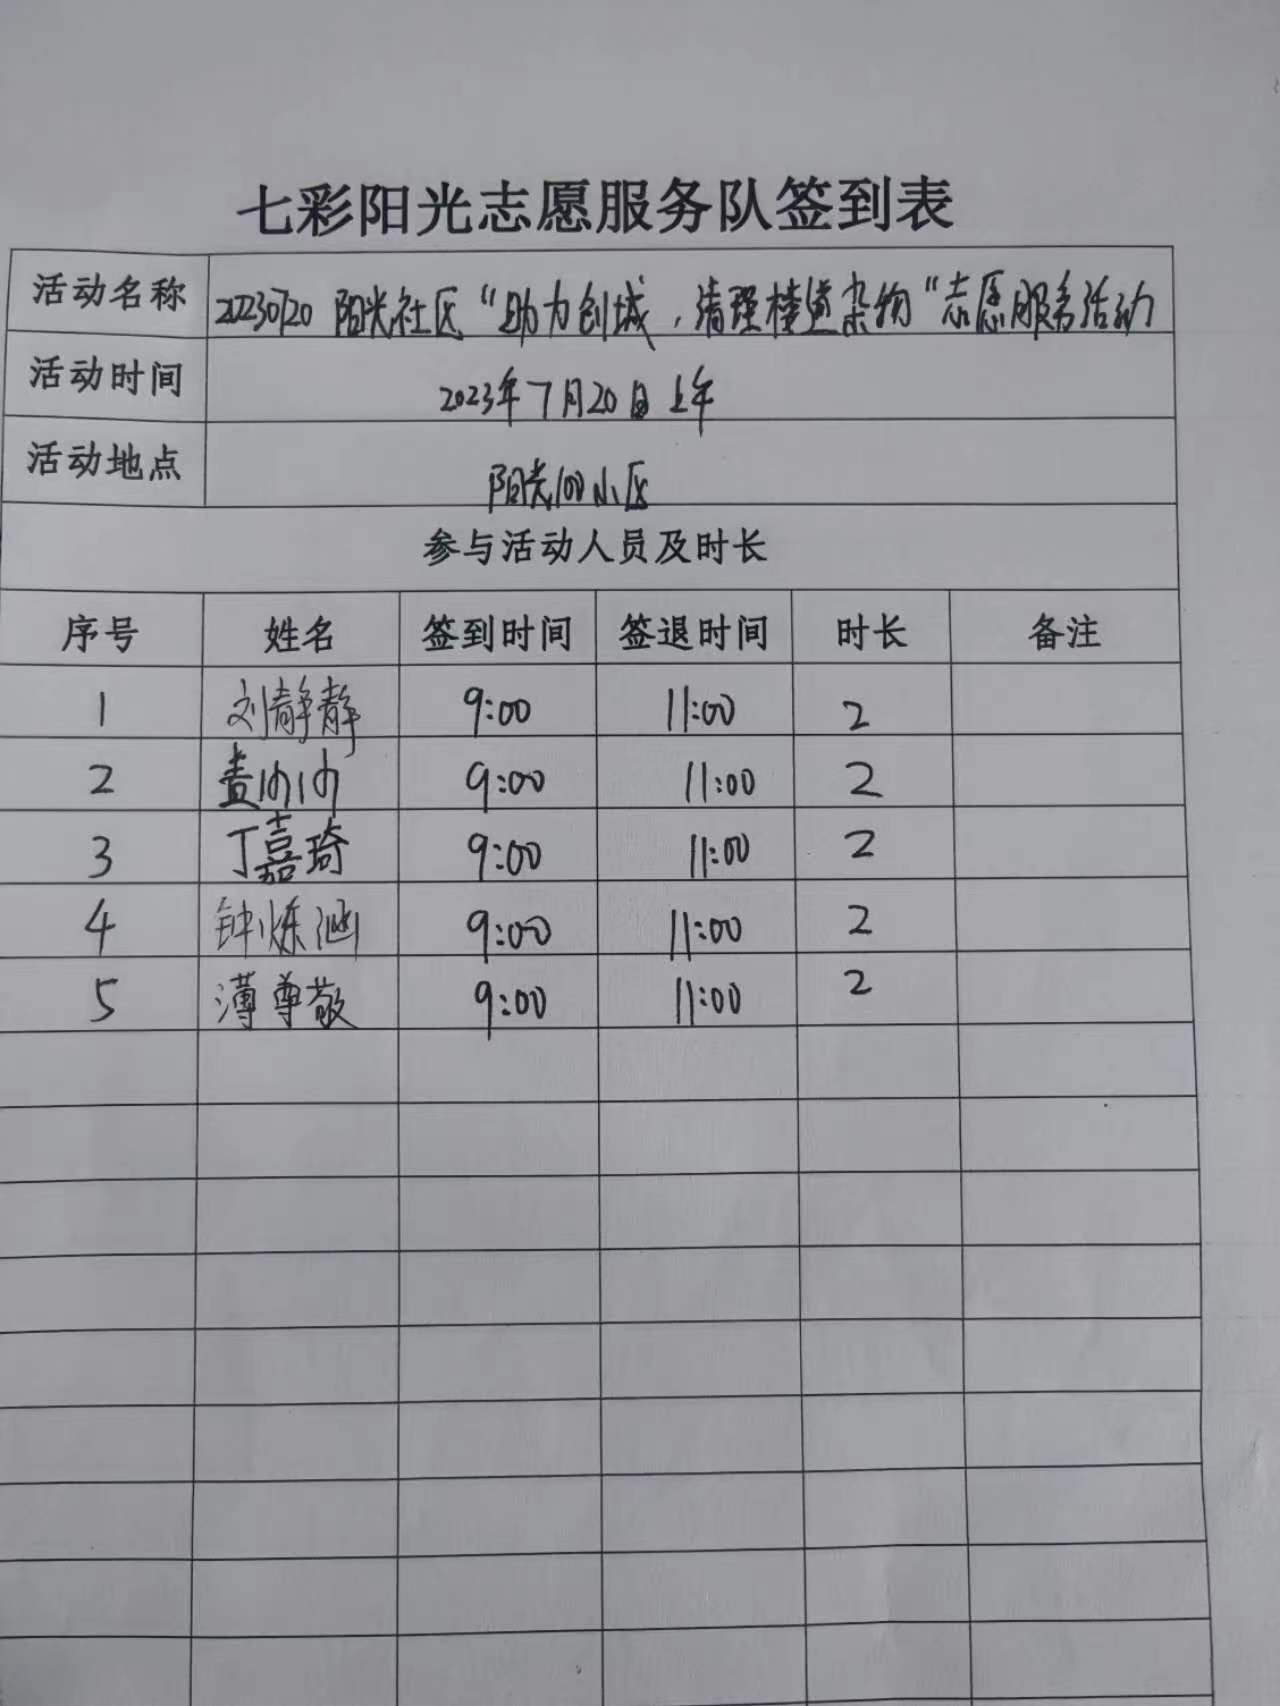 七彩阳光志愿服务队签到表
活动名称 20230720 阳光社区“助力创城，清理楼道杂物”志愿服务活动
活动时间 2023年7月20日上午
活动地点 阳光100小区
参与活动人员及时长
序号 姓名 签到时间 签退时间 时长 备注
1 刘静静 9:00 11:00 2
2 9:00 11:00 2
3 丁嘉琦 9:00 11:00 2
4 钟炼涵 9:00 11:00 2
5 薄尊敬 9:00 11:00 2